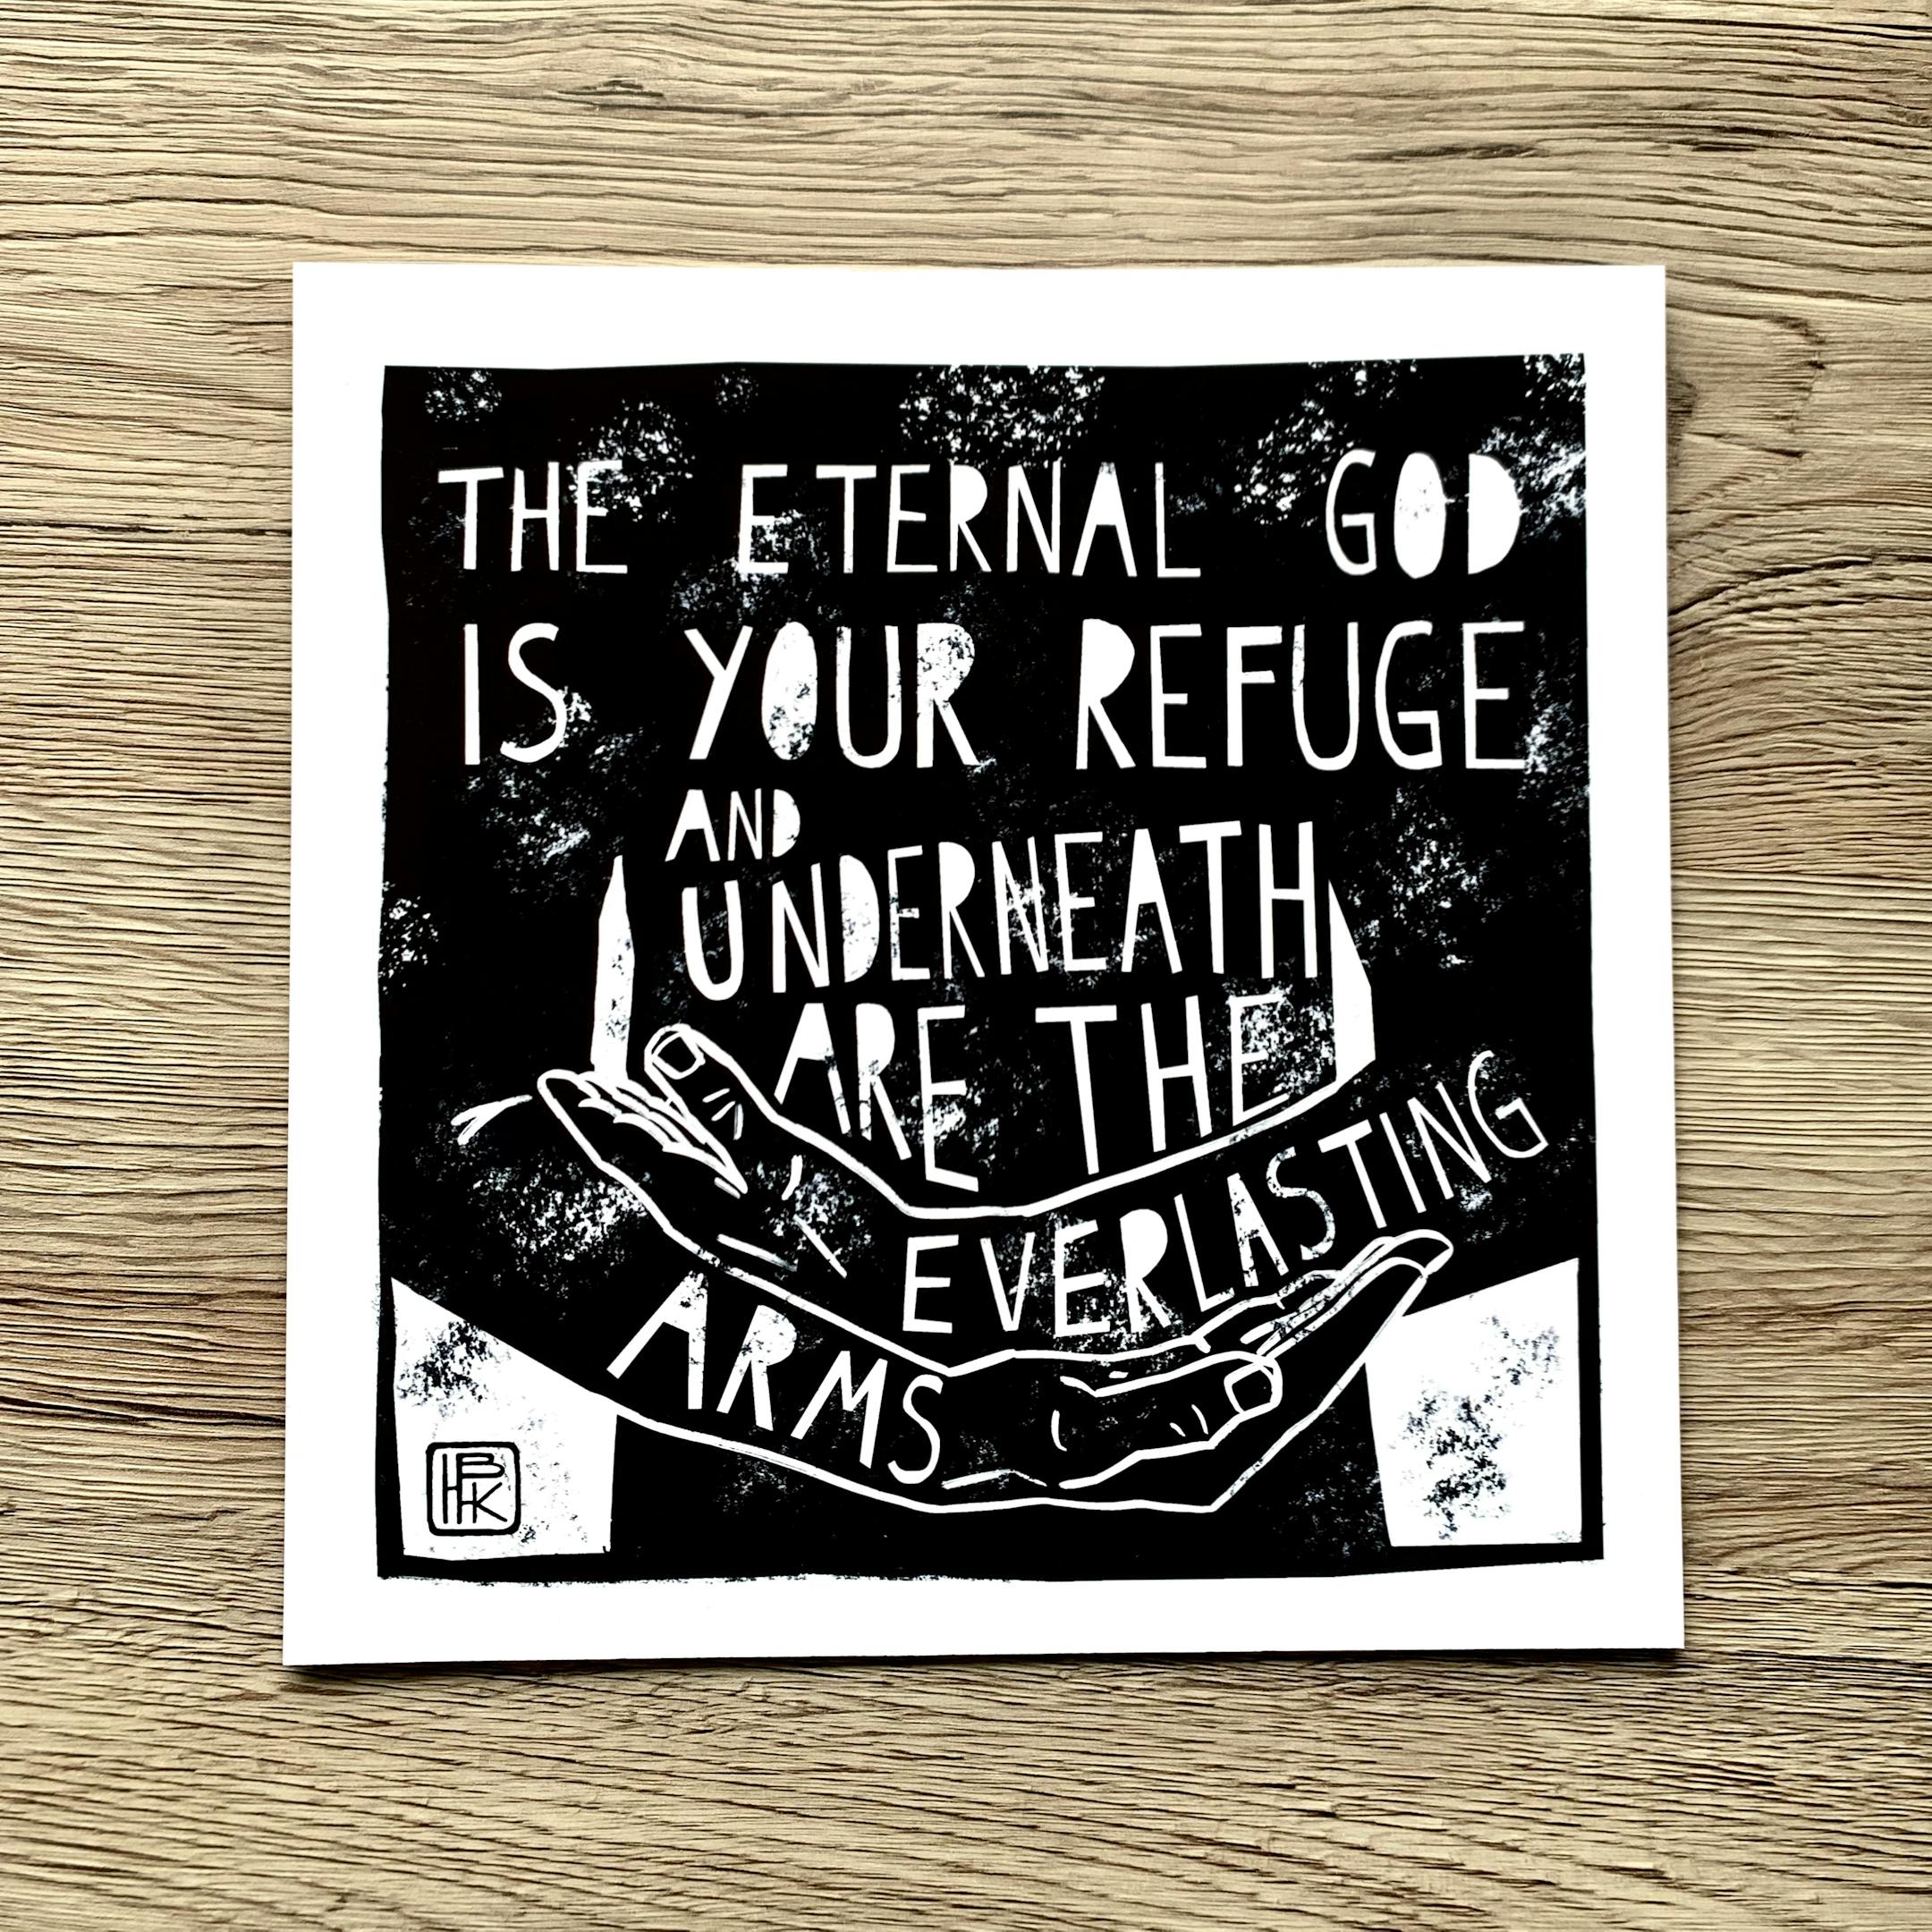 THE ETERNAL GOD
IS YOUR REFUGE
AND
UNDERNEATH
ARE THE
EVERLASTING
ARMS
HBK